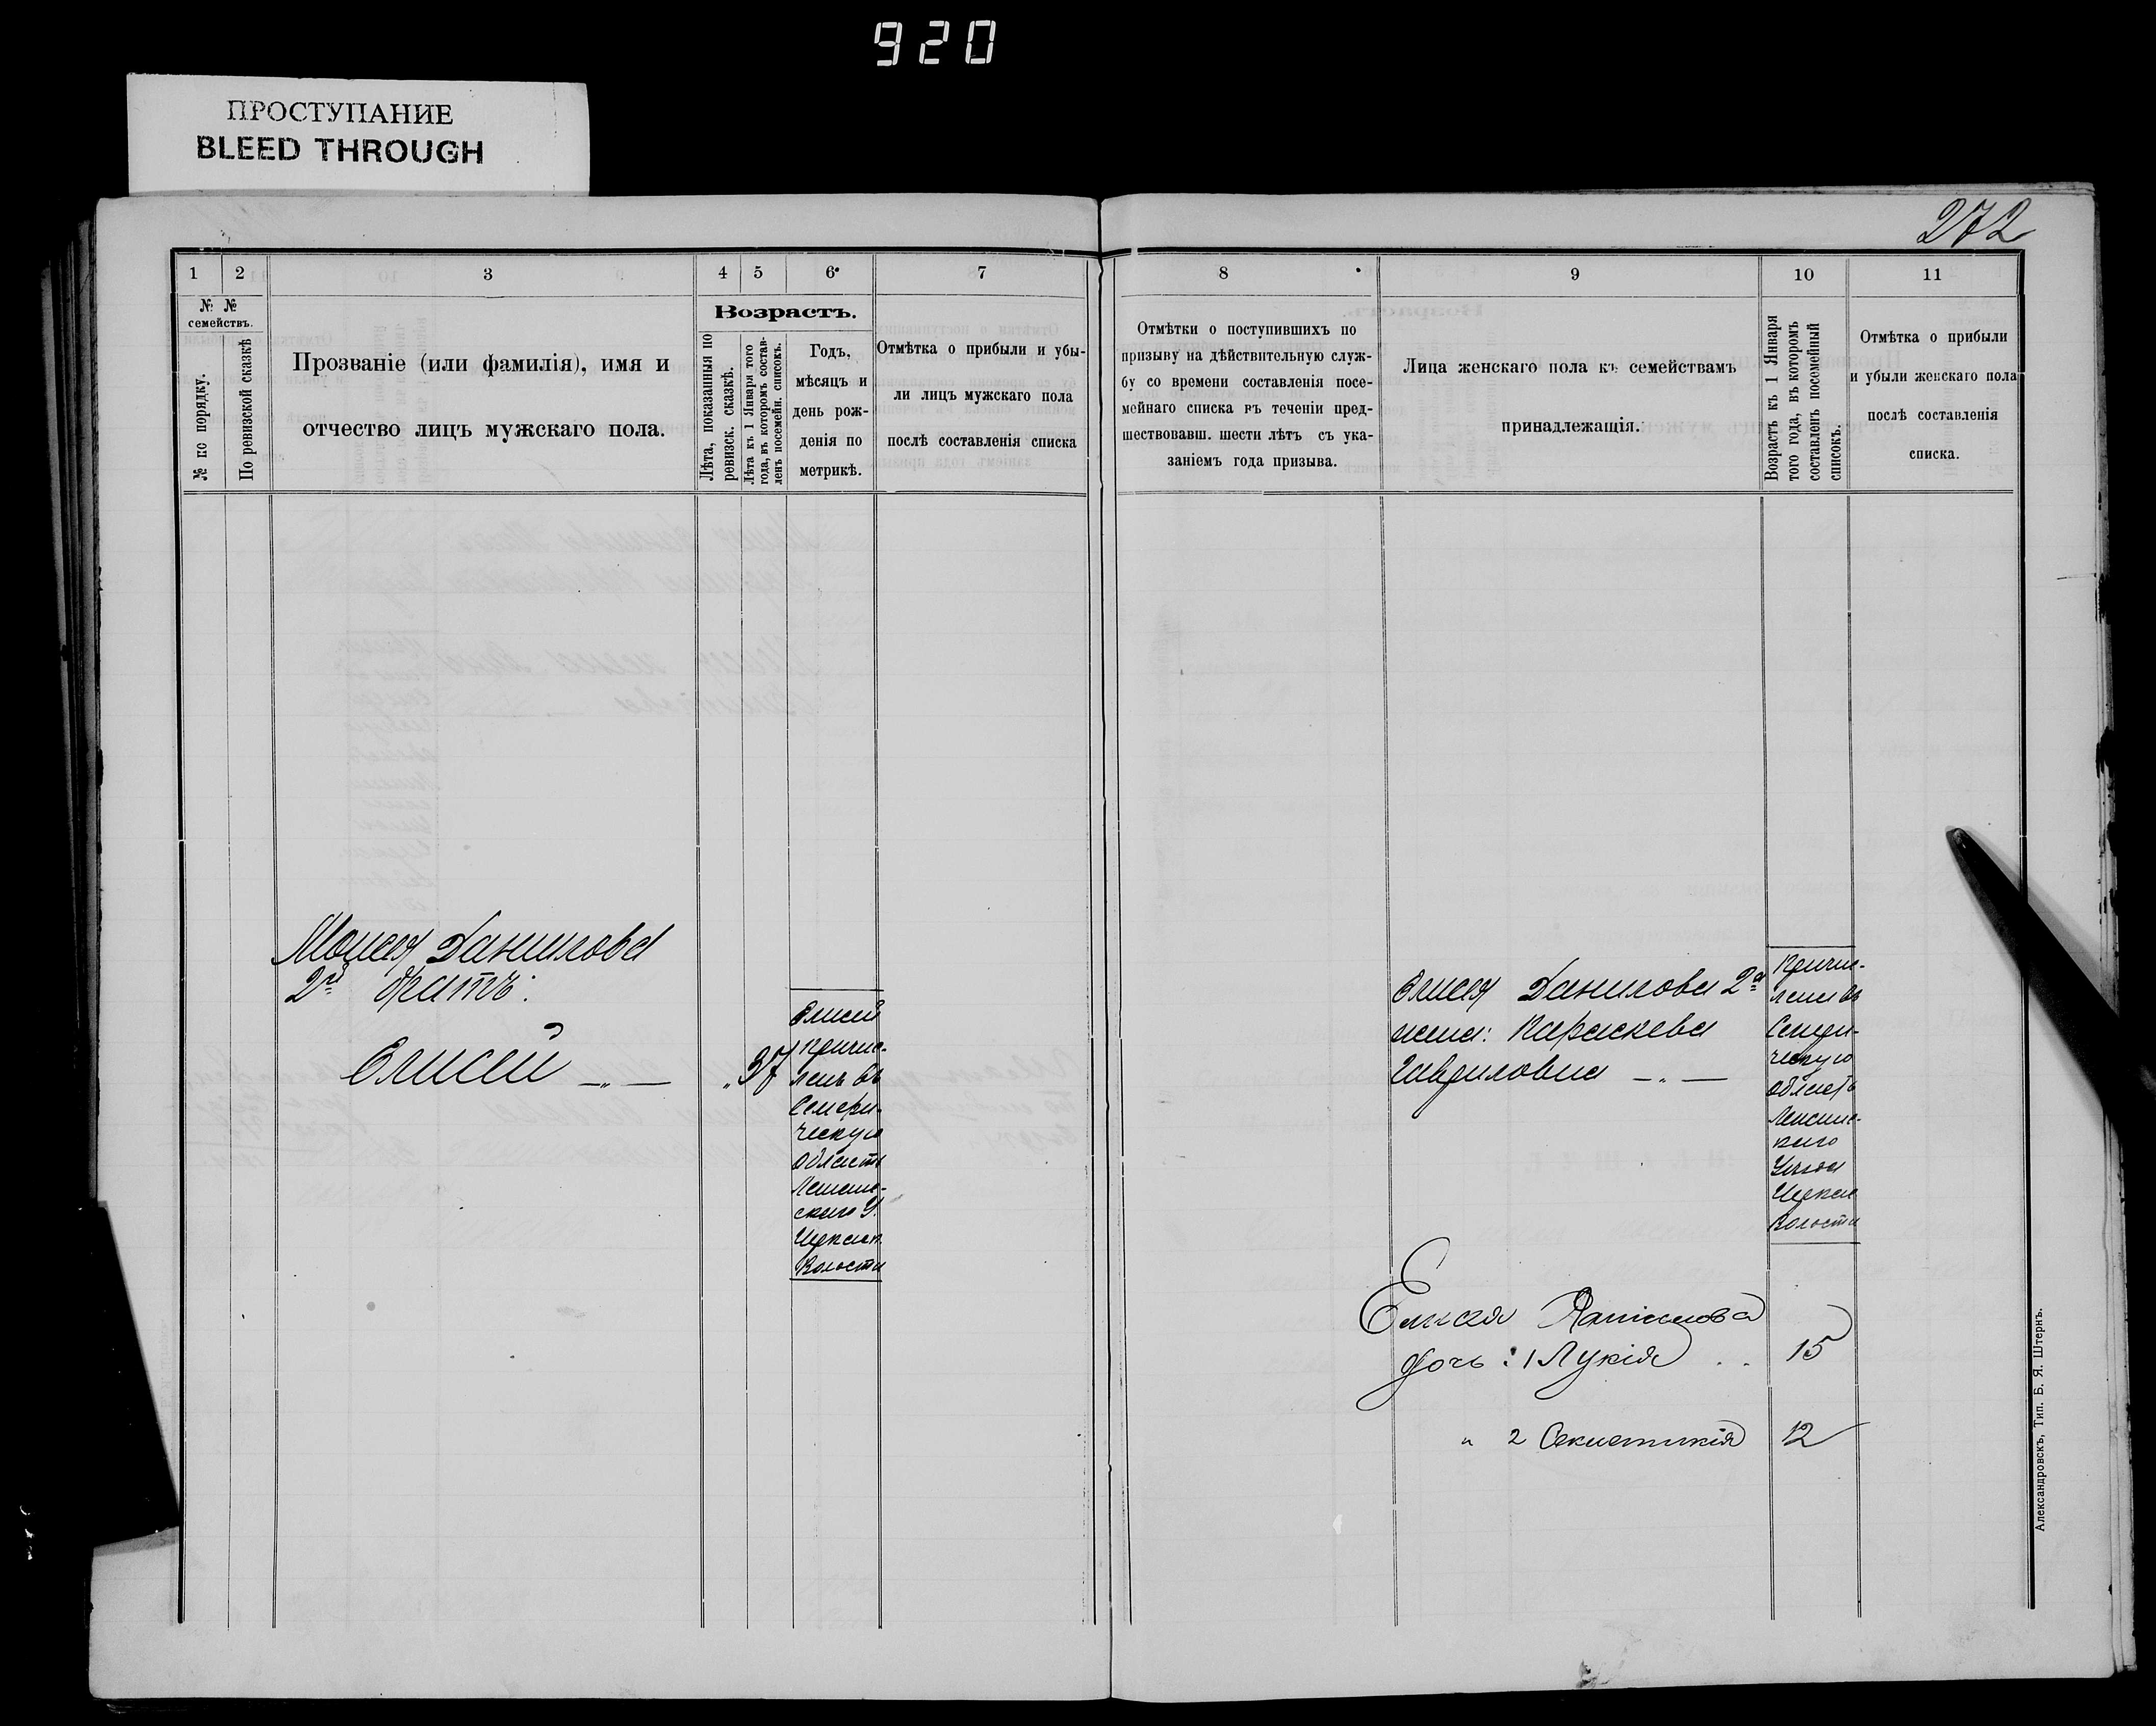 920
ПРОСТУПАНИЕ
BLEED THROUGH
272
1
2
3
4
5
6
7
№ № семействъ.
№ по порядку.
По ревизской сказкѣ
Прозваніе (или фамилія), имя и
отчество лицъ мужскаго пола.
Возрастъ.
Лѣта, показанныя по
ревизск. сказкѣ.
Лѣта къ 1 Января того
года, въ которомъ состав-
ленъ посемейн. списокъ.
Годъ,
мѣсяцъ и
день рож-
денія по
метрикѣ.
Отмѣтка о прибыли и убы-
ли лицъ мужскаго пола
послѣ составленія списка
Моисея Данилова
2й братъ:
Елисей — „ — „ 37
Елисей
причис-
ленъ въ
Семирѣ-
ческую
область
скаго У.
Волости
8
9
10
11
Отмѣтки о поступившихъ по
призыву на дѣйствительную служ-
бу со времени составленія посе-
мейнаго списка въ теченіи пред-
шествовавш. шести лѣтъ съ ука-
заніемъ года призыва.
Лица женскаго пола къ семействамъ
принадлежащія.
Возрастъ къ 1 Января
того года, въ которомъ
составленъ посемейный
списокъ.
Отмѣтка о прибыли
и убыли женскаго пола
послѣ составленія
списка.
Елисея Данилова 2а
жена: Параскева
Гавриловна — „ —
Причис-
лена въ
ческую
область
Уѣзда
Волости
Елисея Данилова
дочь: 1 Лукія . . 15
„ 2 12
Александровскъ, Тип. Б. Я. Штернъ.